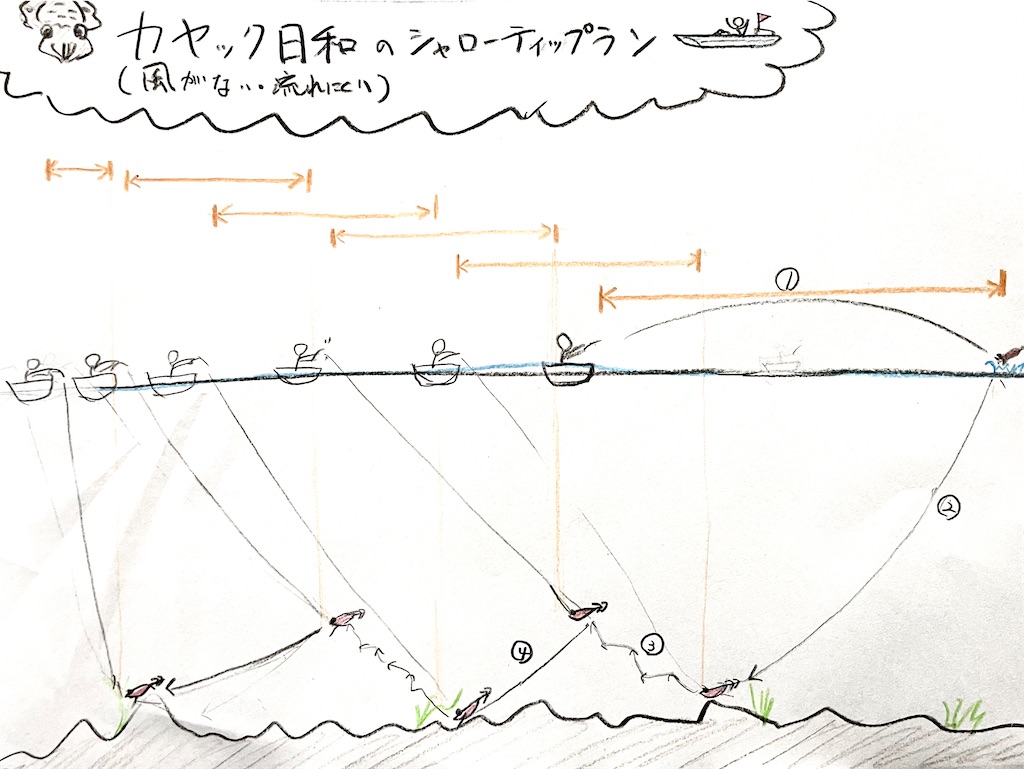 カヤック日和のシャローティップラン
(風がない・流れにくい)
①
②
③
④